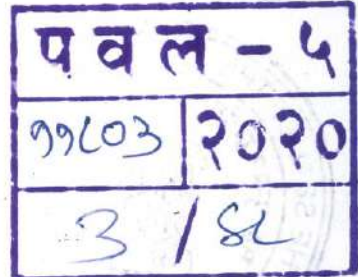 पवल - ५
११८०३ २०२०
३ / ४८